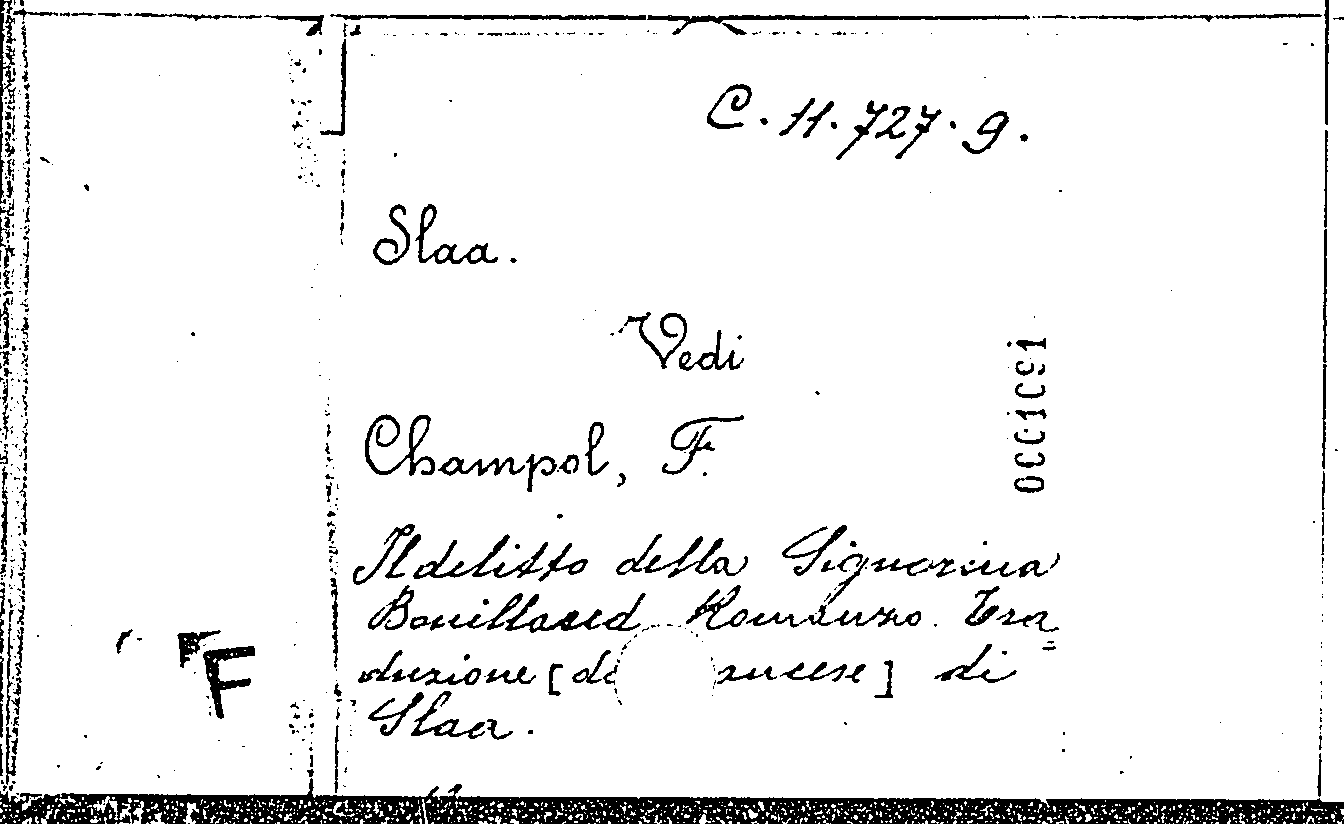 C. 11. 727. 9.
Slaa.
Vedi
Champol, F.
0001091
Il delitto della Signorina
Romanzo. Tra=
duzione [d ancese] di
Slaa.
F